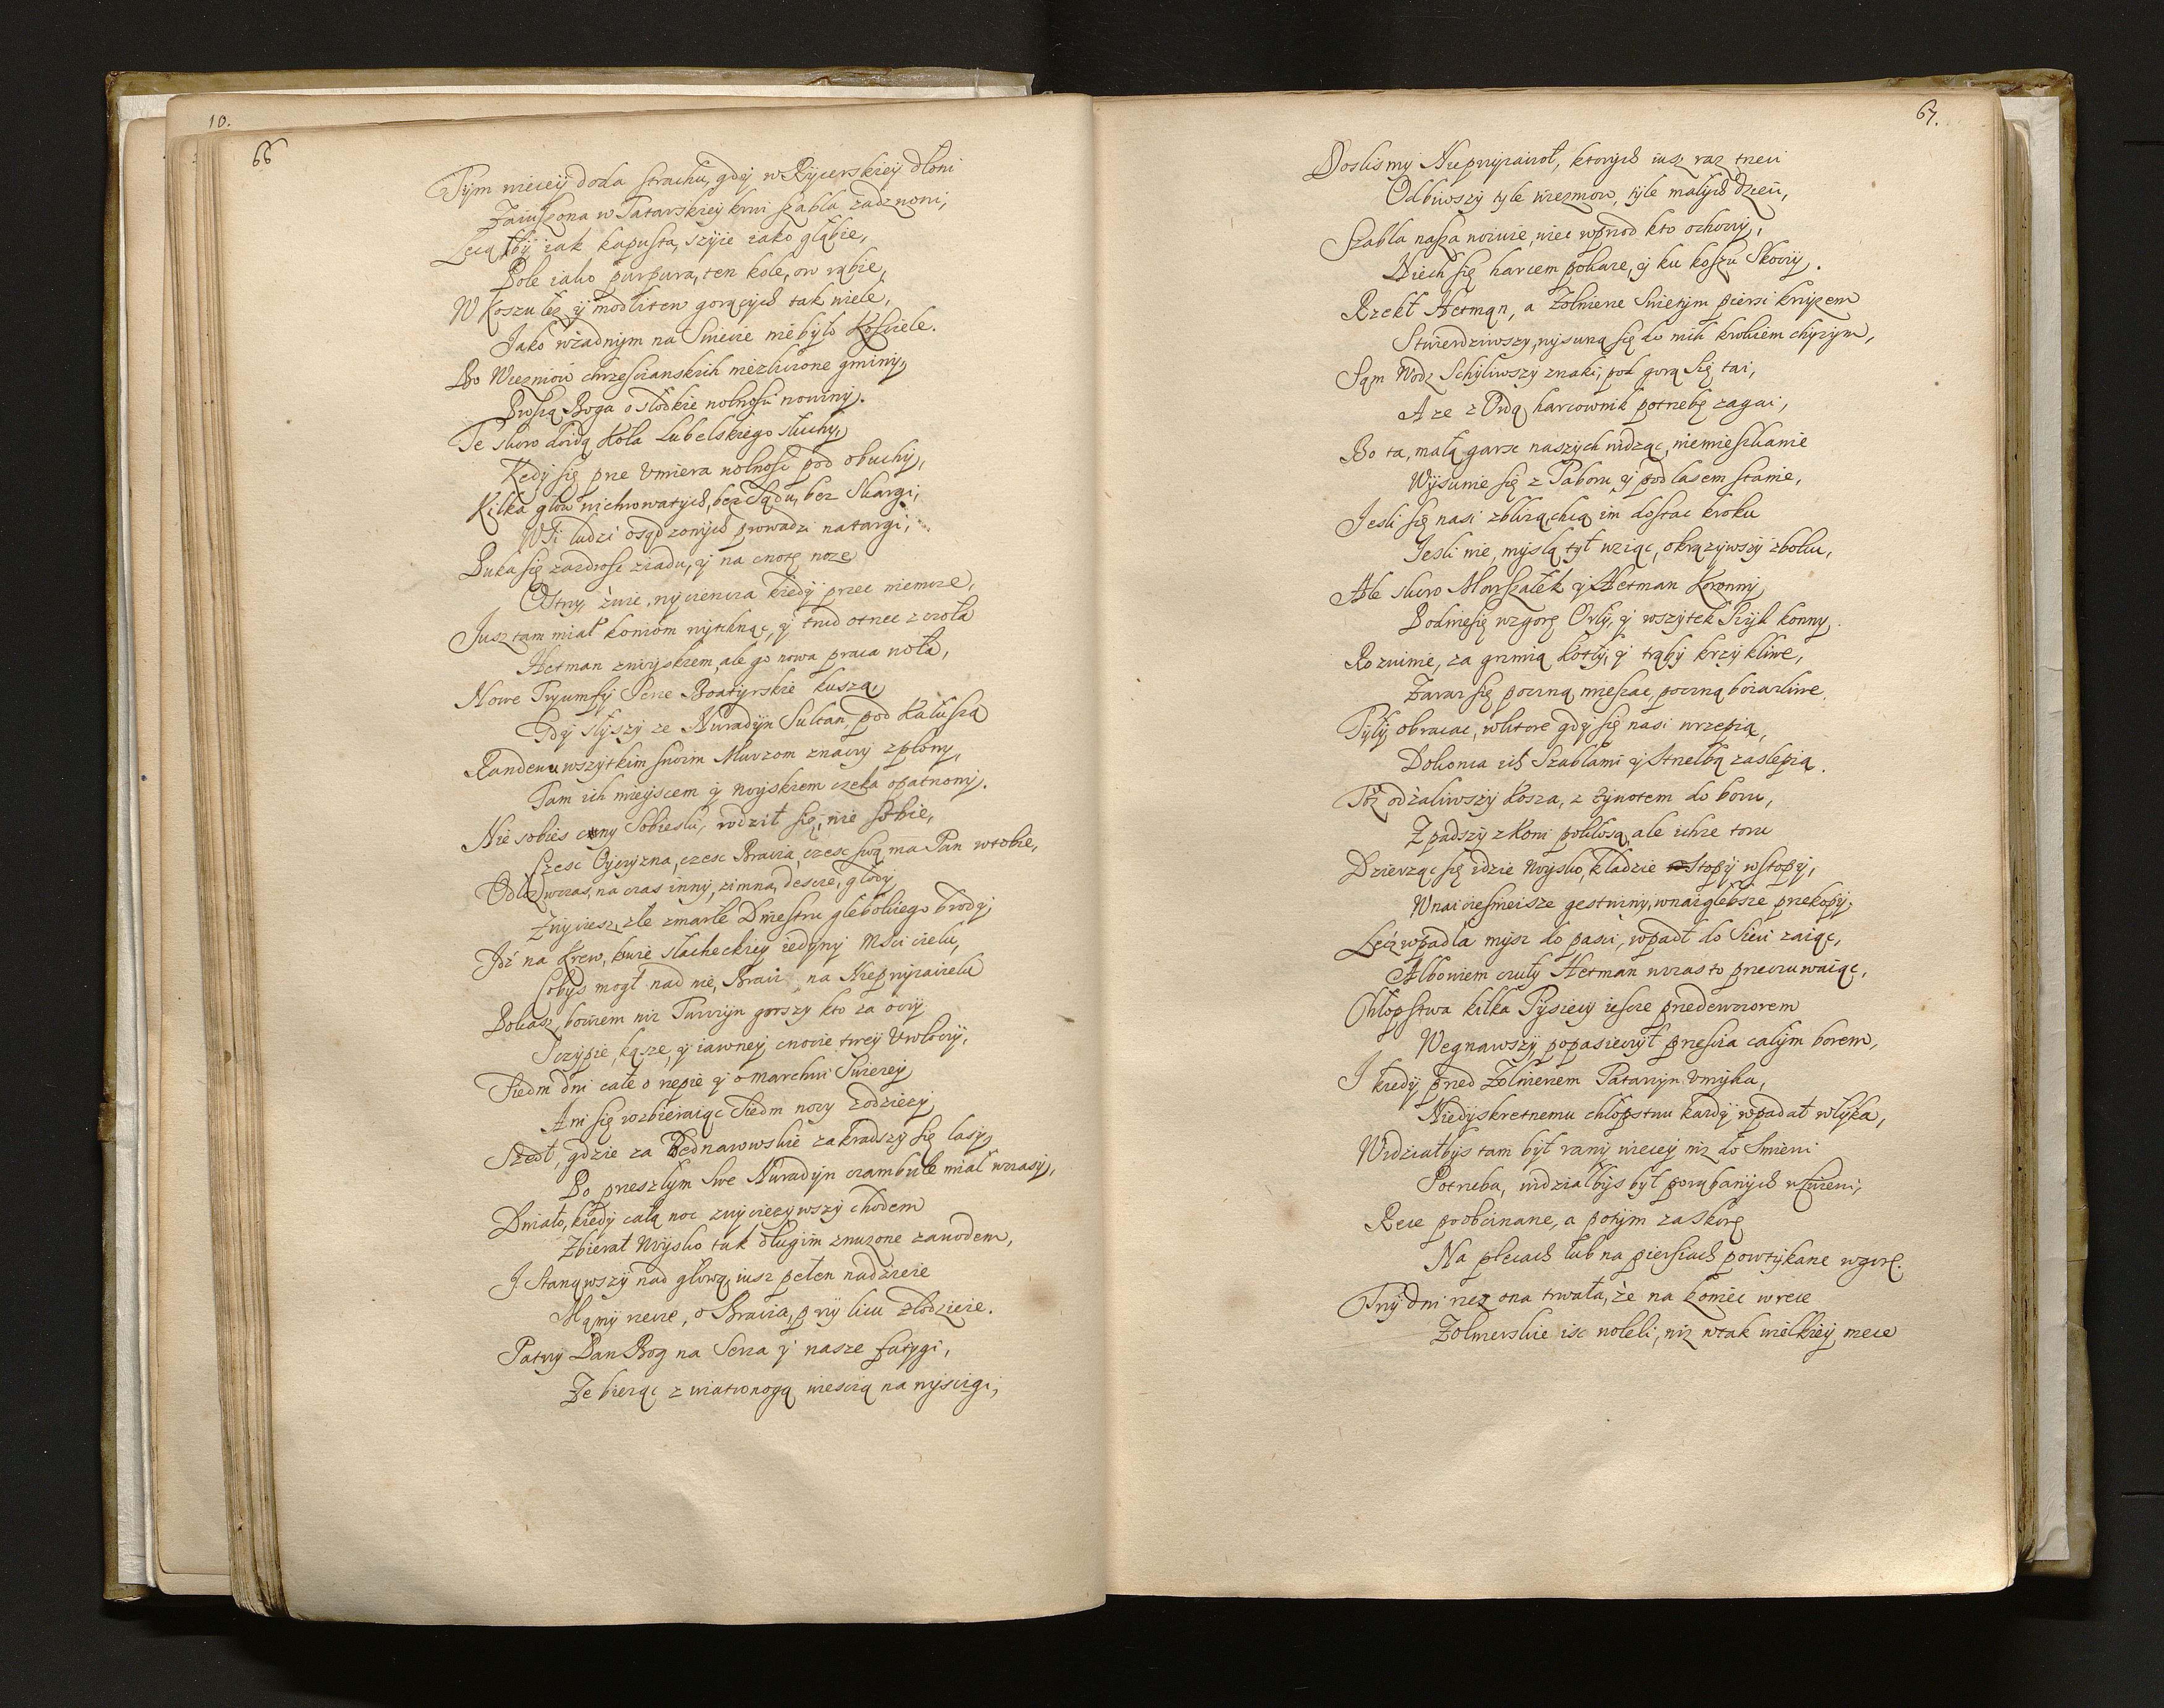 10.
66
Tym wiecey doda strachu, gdy w Rycerskiey dłoni
Zaiuszona w Tatarskiey krwi szabla zadzwoni,
Lecą łby iak kapusta, szyie iako głąbie,
Pole iako purpura, ten kole, ow rąbie,
W Koszu tez y modlitew gorących tak wiele,
Jako wżadnym na Swiecie niebyło Kościele.
Bo Wiezniow chrzescianskich niezliczone gminy,
Proszą Boga o słodkie wolnosci nowiny.
Te skoro doidą Koła Lubelskiego słuchy,
Kedy się prze Vmiera wolnosc pod obuchy,
Kilka głow wichrowatych, bez Sądu, bez Skargi,
Wsi ludzi osądzonych prowadzi na targi,
Puka się zazdrosc z iadu, y na cnotę noze
Ostrzy, żuie, wycieńcza kiedy przec niemoze,
Jusz tam miał koniom wytchnąc, y trud otrzec z czoła
Hetman zwoyskiem, ale go nowa praca woła,
Nowe Tryumfy Serce Boatyrskie kuszą,
Gdy słyszy ze Nuradyn Sultan pod Kałuszą
Randeuu wszytkim swoim Murzom znaczy zplony,
Tam ich mieyscem y woyskiem czeka opatrzony.
Nie sobies cny Sobieski, rodził się, nie sobie,
Czesc Oyczyzna, czesc Bracia, czesc swą ma Pan wtobie,
Odłoz wczas, na czas inny, zimna, descze, głody
Zwyciesz, złe zmarłe Dniestru glebokiego brody,
Idź na krew, krwie slacheckiey iedyny Mscicielu,
Cobys mogł nad nie, Braci na Nieprzyiacielu
Pokasz, bowiem niz Turczyn gorszy kto za oczy
Sczypie, kąsze, y iawney cnocie twey Vwłoczy,
Siedm dni całe o rzepie y o marchwi Swiezey
Ani się rozbieraiąc Siedm nocy zodziezy
Szedł, gdzie za Bednarowskie zakradszy się lasy,
Po przeszłym Swe Nuradyn czambule miał wczasy,
Dniało, kiedy całą noc zwyciezywszy chodem
Zbierał Woysko tak długim znuzone zawodem,
I Stanąwszy nad głową, iusz pełen nadzieie
Mamy rzecze, o Bracia, przy licu złodzieie.
Patrzy Pan Bog na Serca y nasze fatygi,
Ze bieząc z wiatronogą wiescią na wyscigi,
67.
Doslismy Nieprzyiacioł, ktorych iusz raz trzeci
Odbiwszy tyle wiezniow, tyle małych dzieci,
Szabla nasza woiuie, wiec wprzod kto ochoczy,
Niech się harcem pokaze, y ku koszu Skoczy.
Rzekł Hetman, a Zolnierze Swietym piersi krzyzem
Stwierdziwszy, wysuną się do nich krokiem chyzym,
Sam Wodz Schyliwszy znaki, pod gorą się tai,
A ze z Ordą harcownik potrzebę zagai,
Bo ta, małą garsc naszych widząc, niemieszkanie
Wysunie się z Taboru, y pod lasem stanie,
Jesli się nasi zblizą, chcą im dostac kroku
Jesli nie, myslą tył wziąc, okrązywszy zboku,
Ale skoro Marszałek y Hetman Koronny
Podniesie wzgorę Orły, y wszytek Szyk konny
Rozwinie, za grzmią kotły, y trąby krzykliwe,
Zaraz się poczną mieszac, poczną boiazliwe
Tyły obracac, wktore gdy się nasi wrzepią,
Dokonca ich Szablami y Strzelbą zaslepią.
Toż odżaliwszy kosza, z Zywotem do boru,
Z padszy z koni pokłosą, ale ichze toru
Dzierząc się idzie Woysko, kładzie Stopy wStopy,
Wnaiciesnieisze gestwiny, wnaiglebsze przekopy,
Lecz wpadła mysz do pasci, wpadł do Sieci zaiąc,
Albowiem czuły Hetman wczas to przeczuwaiąc,
Chłopstwa kilka Tysiecy iescze przedewczorem
Wegnawszy, poprasieczył przescia całym borem,
I kiedy przed Zolnierzem Tatarzyn Vmyka,
Niedyskretnemu chłopstwu kazdy wpadał włyka,
Widziałbys tam był rany wiecey niz do Smierci
Potrzeba, widziałbys był porąbanych wCwierci,
Rece poobcinane, a potym za Skorę
Na plecach lub na piersiach powtykane wzgorę.
Trzy dni rzez ona trwała, że na koniec wrece
Zolnierskie isc woleli, niz wtak wielkiey mece